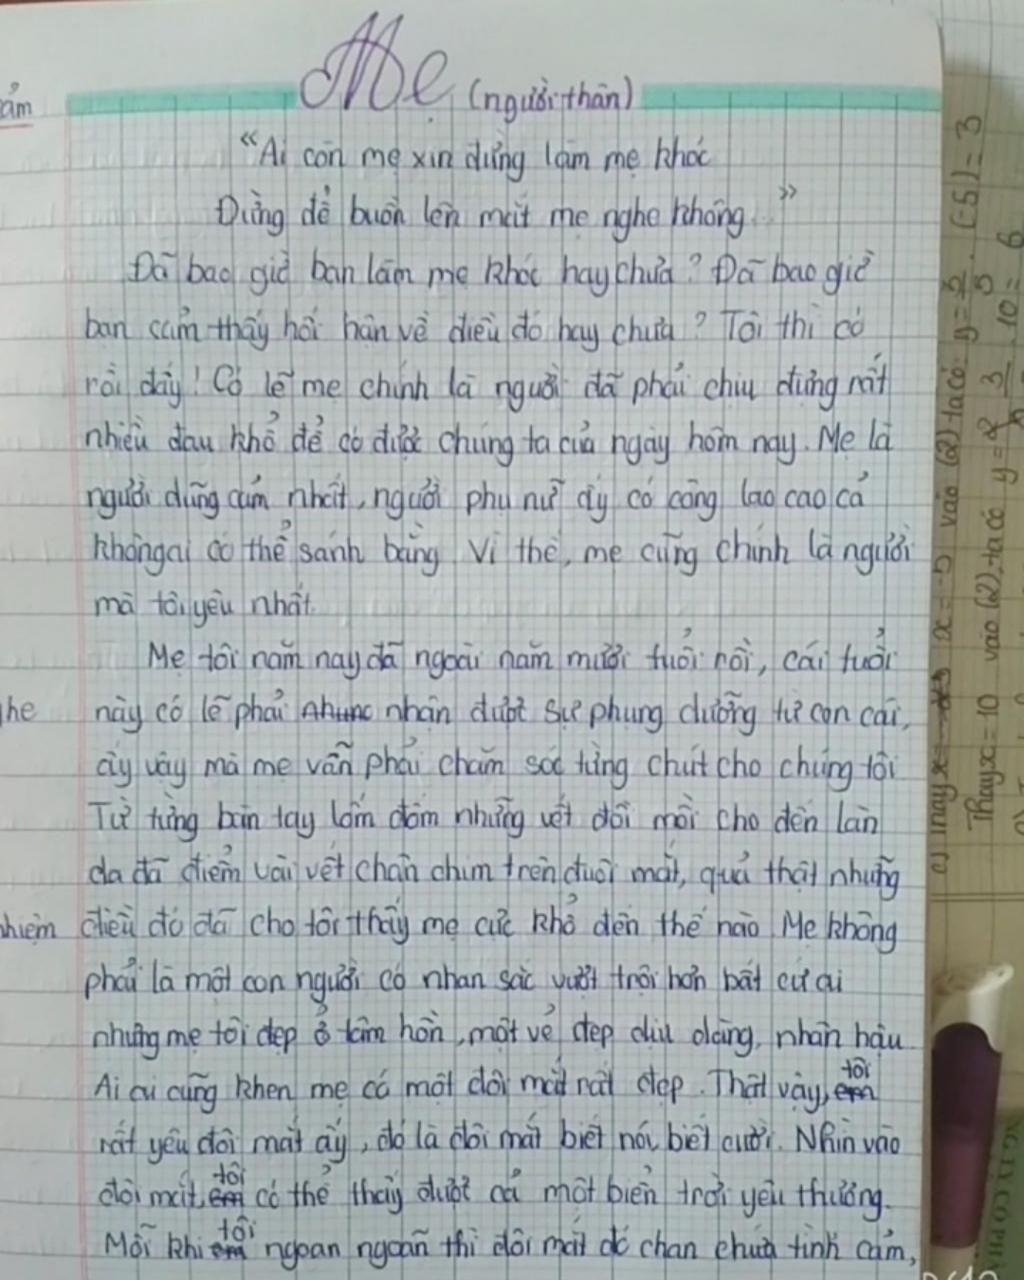 Mẹ (người thân)
"Ai còn mẹ xin đừng làm mẹ khóc
Đừng để buồn lên mắt mẹ nghe không."
Đã bao giờ bạn làm mẹ khóc hay chưa? Đã bao giờ
bạn cảm thấy hối hận về điều đó hay chưa? Tôi thì có
rồi đấy! Có lẽ mẹ chính là người đã phải chịu đựng rất
nhiều đau khổ để có được chúng ta của ngày hôm nay. Mẹ là
người dũng cảm nhất, người phụ nữ ấy có công lao cao cả
không ai có thể sánh bằng. Vì thế, mẹ cũng chính là người
mà tôi yêu nhất.
Mẹ tôi năm nay đã ngoài năm mươi tuổi rồi, cái tuổi
này có lẽ phải nhận được sự phụng dưỡng từ con cái,
ấy vậy mà mẹ vẫn phải chăm sóc từng chút cho chúng tôi
Từ từng bàn tay lốm đốm những vết đồi mồi cho đến làn
da đã điểm vài vết chân chim trên đuôi mắt, quả thật những
điều đó đã cho tôi thấy mẹ cực khổ đến thế nào. Mẹ không
phải là một con người có nhan sắc vượt trội hơn bất cứ ai
nhưng mẹ tôi đẹp ở tâm hồn, một vẻ đẹp dịu dàng, nhân hậu.
Ai ai cũng khen mẹ có một đôi mắt rất đẹp. Thật vậy, tôi
rất yêu đôi mắt ấy, đó là đôi mắt biết nói, biết cười. Nhìn vào
đôi mắt, tôi có thể thấy được cả một biển trời yêu thương.
Mỗi khi tôi ngoan ngoãn thì đôi mắt đó chan chứa tình cảm,
ảm
ghe
nhiệm
x = -5 vào (2), ta có: y =
Thay x = 10 vào (2), ta có y =